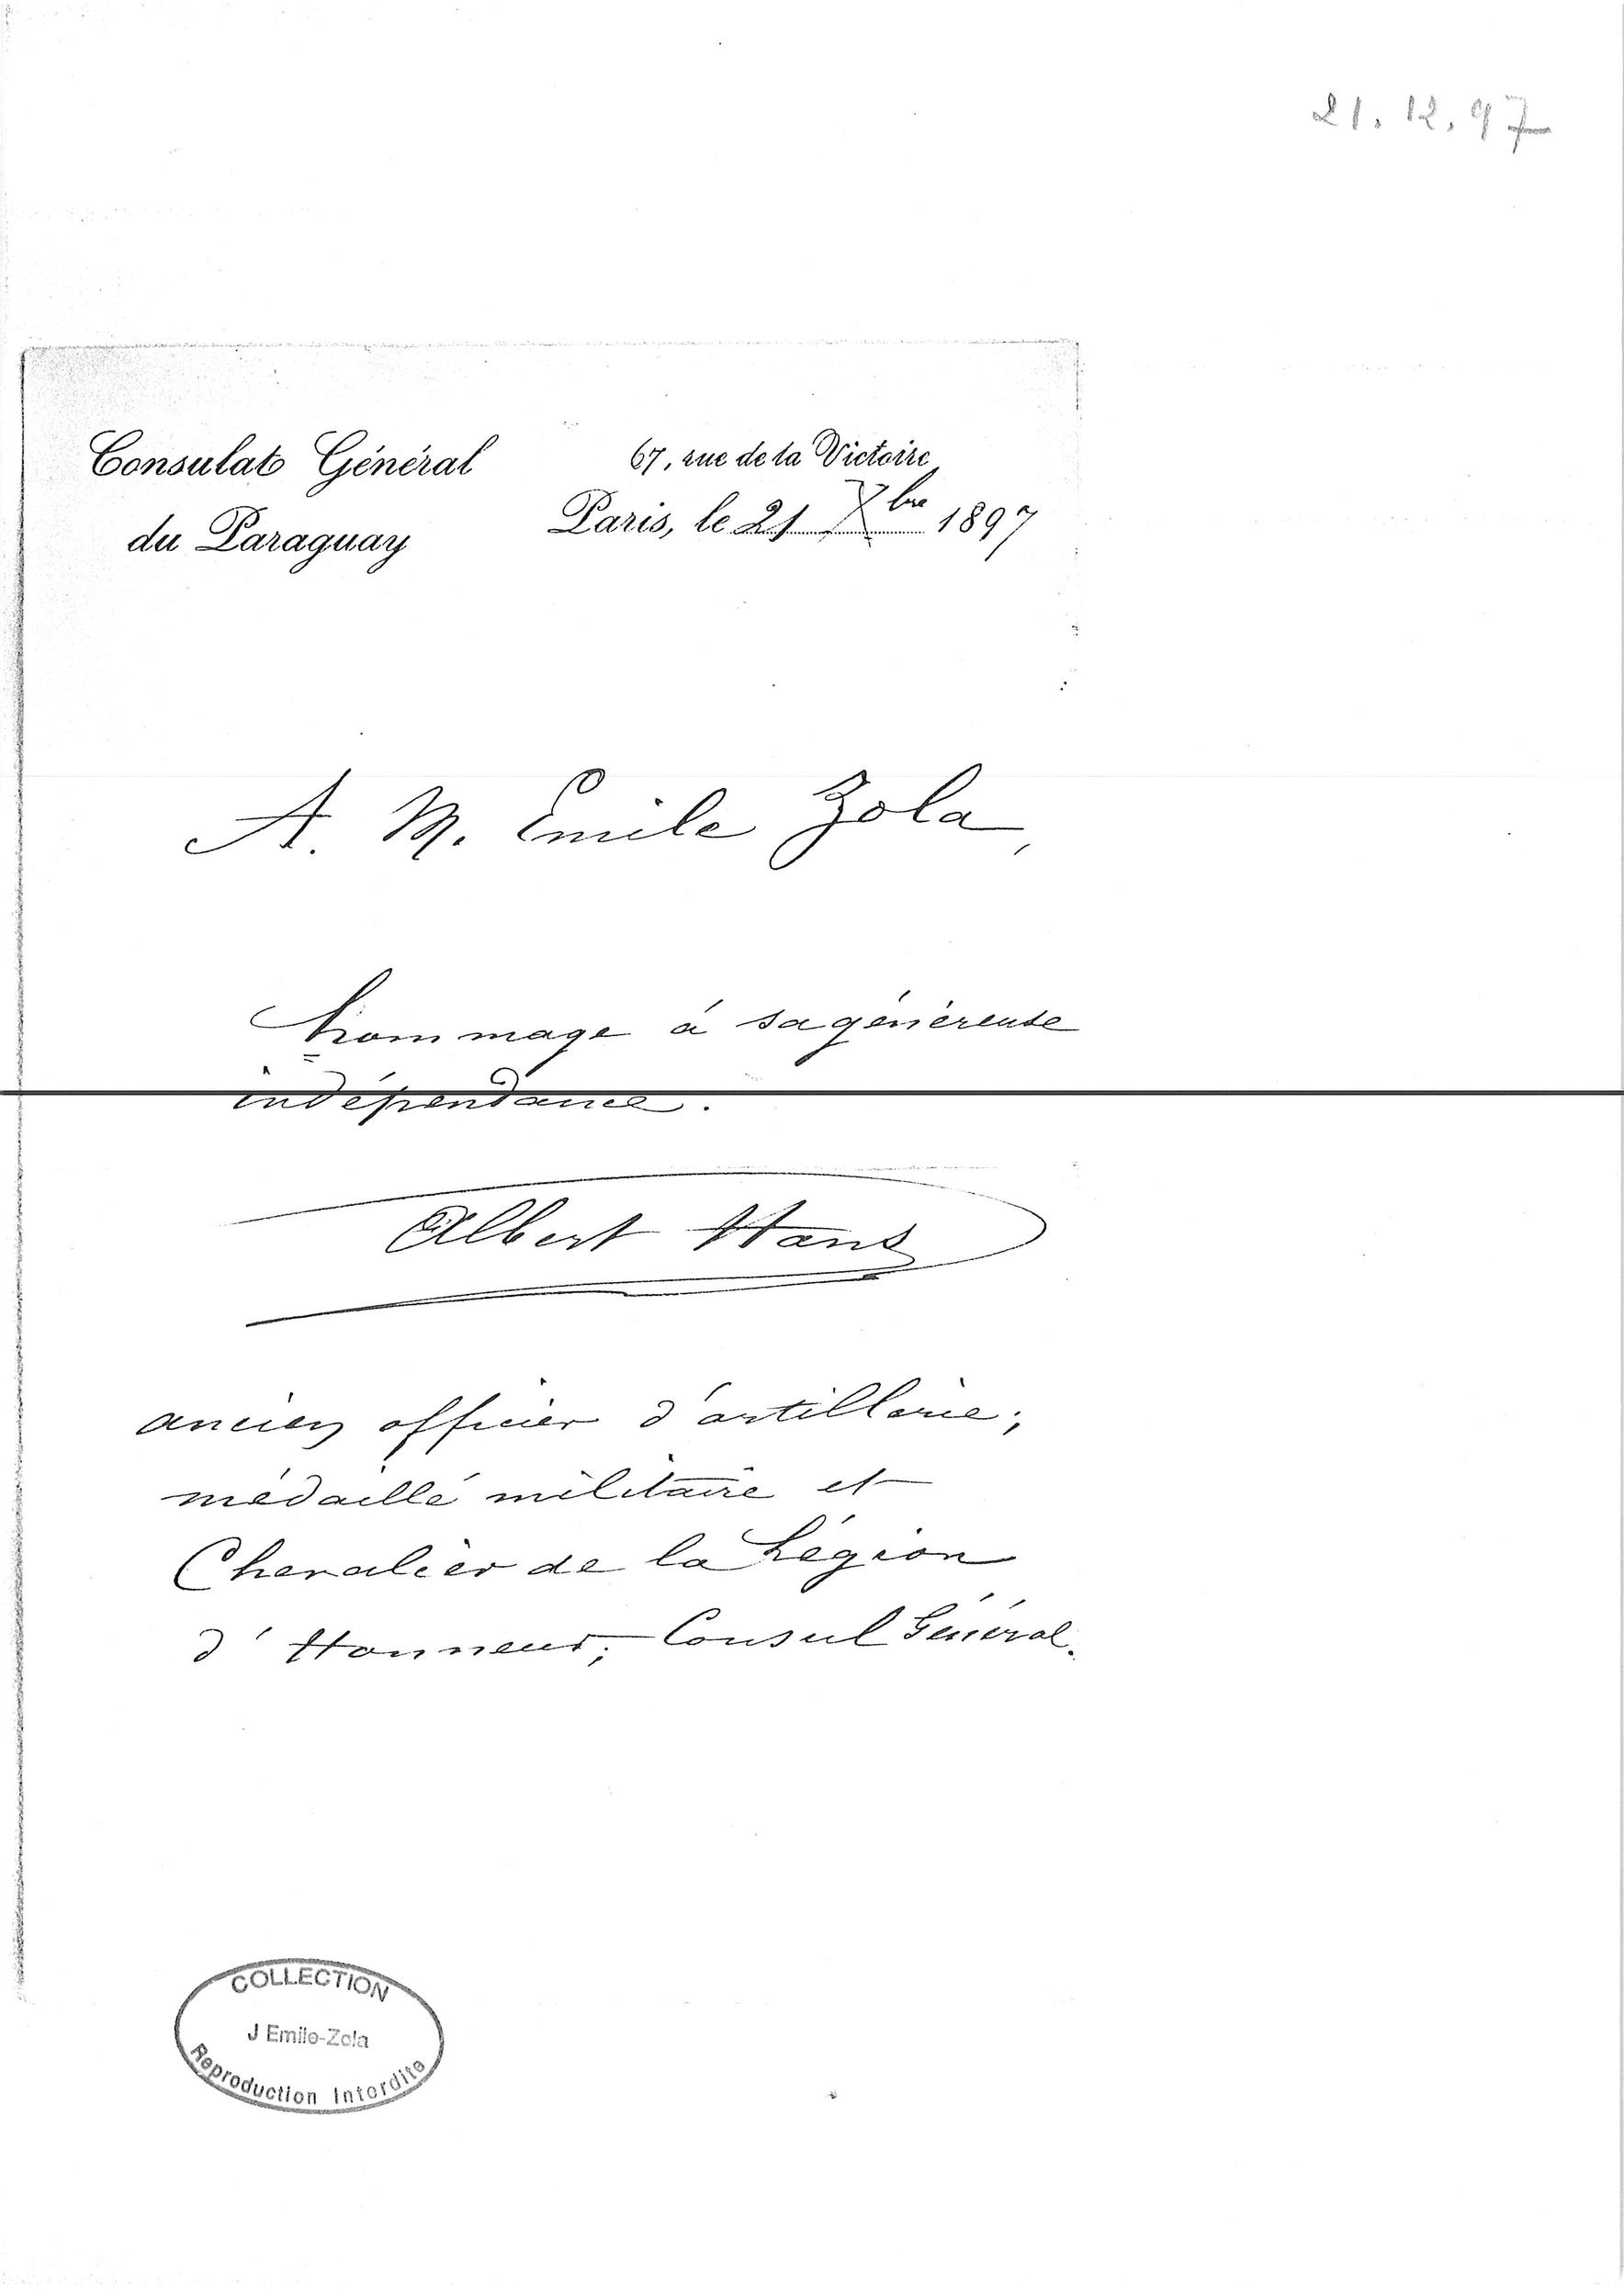 21.12.97
Consulat Général
du Paraguay
67, rue de la Victoire
Paris, le 21 Xbre 1897
A. M. Emile Zola,
hommage à sa généreuse
indépendance.
Albert Hans
ancien officier d'artillerie,
médaillé militaire et
Chevalier de la Légion
d'Honneur; Consul Général.
COLLECTION
J Emile-Zola
Reproduction Interdite